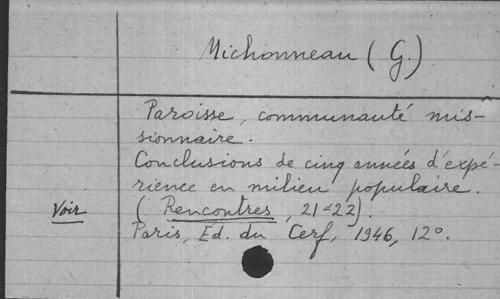 Michonneau (G.)
Paroisse, communauté mis-
sionnaire.
Conclusions de cinq années d'expé-
rience en milieu populaire.
Voir (Rencontres, 21-22).
Paris, Ed. du Cerf, 1946, 12°.